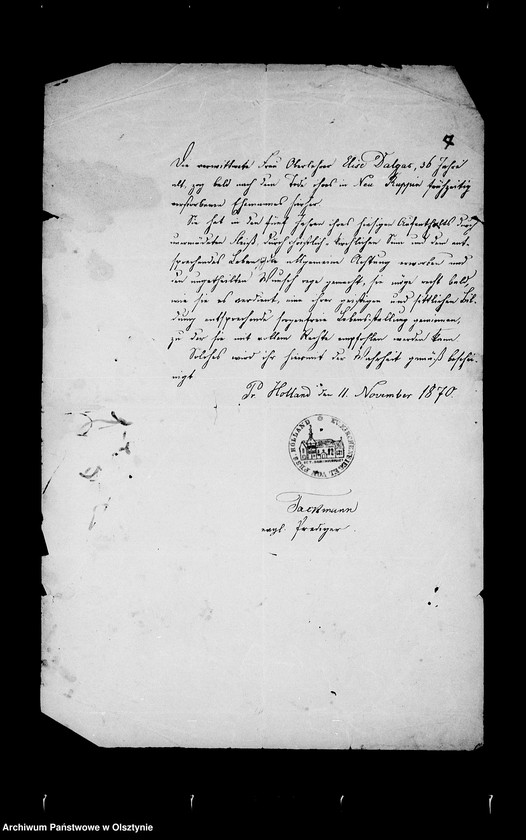 7
Die verwittwete Frau Oberlehrer Elise Dalgas, 36 Jahre
alt, zog bald nach dem Tode ihres in Neu Ruppin frühzeitig
verstorbenen Ehemannes hierher.
Sie hat in den fünf Jahren ihres hiesigen Aufenthalts durch
unermüdeten Fleiß, durch christlich-kirchlichen Sinn und dem ent-
sprechendes Leben die allgemeine Achtung erworben und
den ungetheilten Wunsch rege gemacht, sie möge recht bald
wie sie es verdient, eine ihrer geistigen und sittlichen Bil-
dung entsprechende sorgenfreie Lebensstellung gewinnen,
zu der sie mit vollem Rechte empfohlen werden kann.
Solches wird ihr hiermit der Wahrheit gemäß beschei-
nigt
Pr. Holland den 11. November 1870.
HOLLAND
Tackmann
evgl. Prediger.
Archiwum Państwowe w Olsztynie